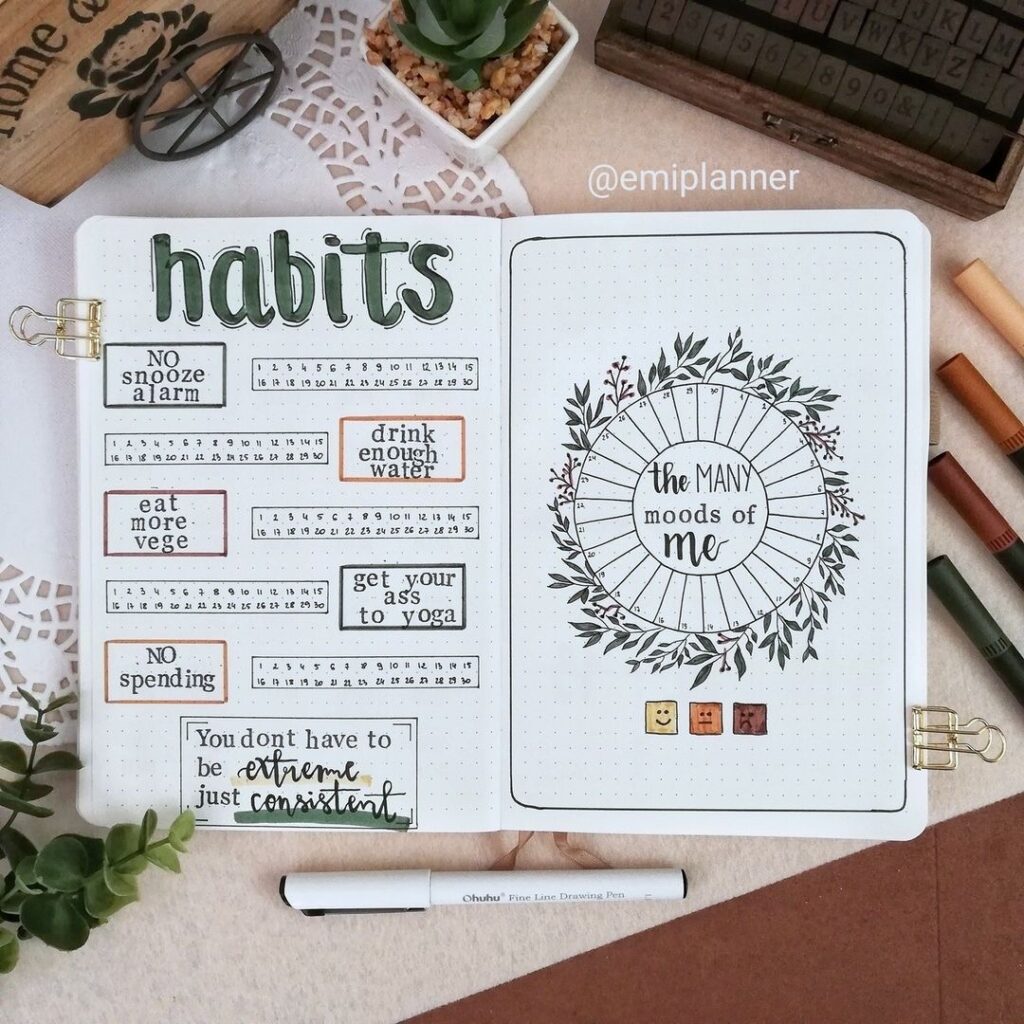 Home &
1 2 3 4 5 6 7 8 9 0 &
U V W X Y Z
@emiplanner
habits
NO
snooze
alarm
1 2 3 4 5 6 7 8 9 10 11 12 13 14 15
16 17 18 19 20 21 22 23 24 25 26 27 28 29 30
1 2 3 4 5 6 7 8 9 10 11 12 13 14 15
16 17 18 19 20 21 22 23 24 25 26 27 28 29 30
drink
enough
water
eat
more
vege
1 2 3 4 5 6 7 8 9 10 11 12 13 14 15
16 17 18 19 20 21 22 23 24 25 26 27 28 29 30
1 2 3 4 5 6 7 8 9 10 11 12 13 14 15
16 17 18 19 20 21 22 23 24 25 26 27 28 29 30
get your
ass
to yoga
NO
spending
1 2 3 4 5 6 7 8 9 10 11 12 13 14 15
16 17 18 19 20 21 22 23 24 25 26 27 28 29 30
You dont have to
be extreme
just consistent
28 29 30
the MANY
moods of
me
Ohuhu® Fine Line Drawing Pen